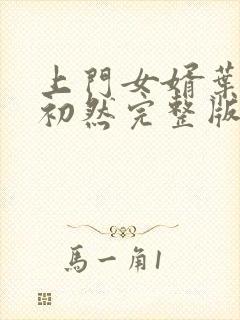 上門女婿葉
初然完整版
馬一角1